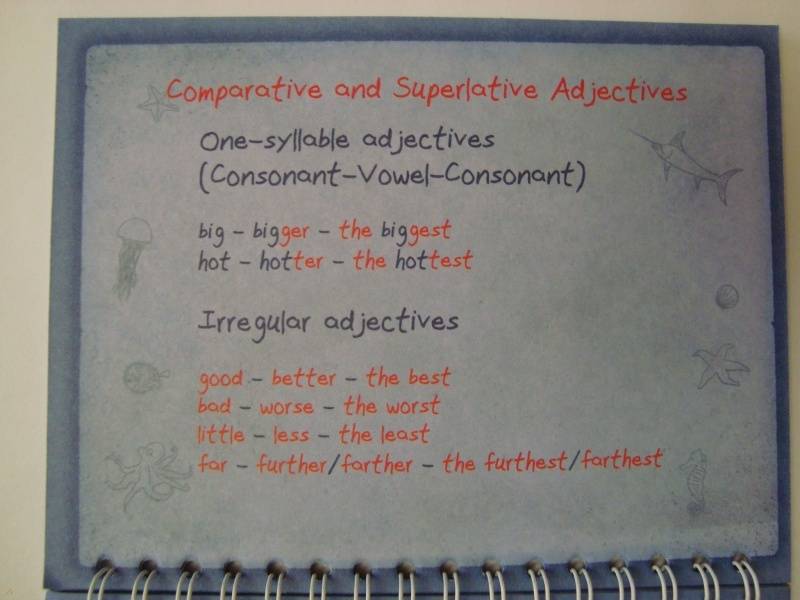 Comparative and Superlative Adjectives
One-syllable adjectives
(Consonant-Vowel-Consonant)
big - bigger - the biggest
hot - hotter - the hottest
Irregular adjectives
good - better - the best
bad - worse - the worst
little - less - the least
far - further/farther - the furthest/farthest